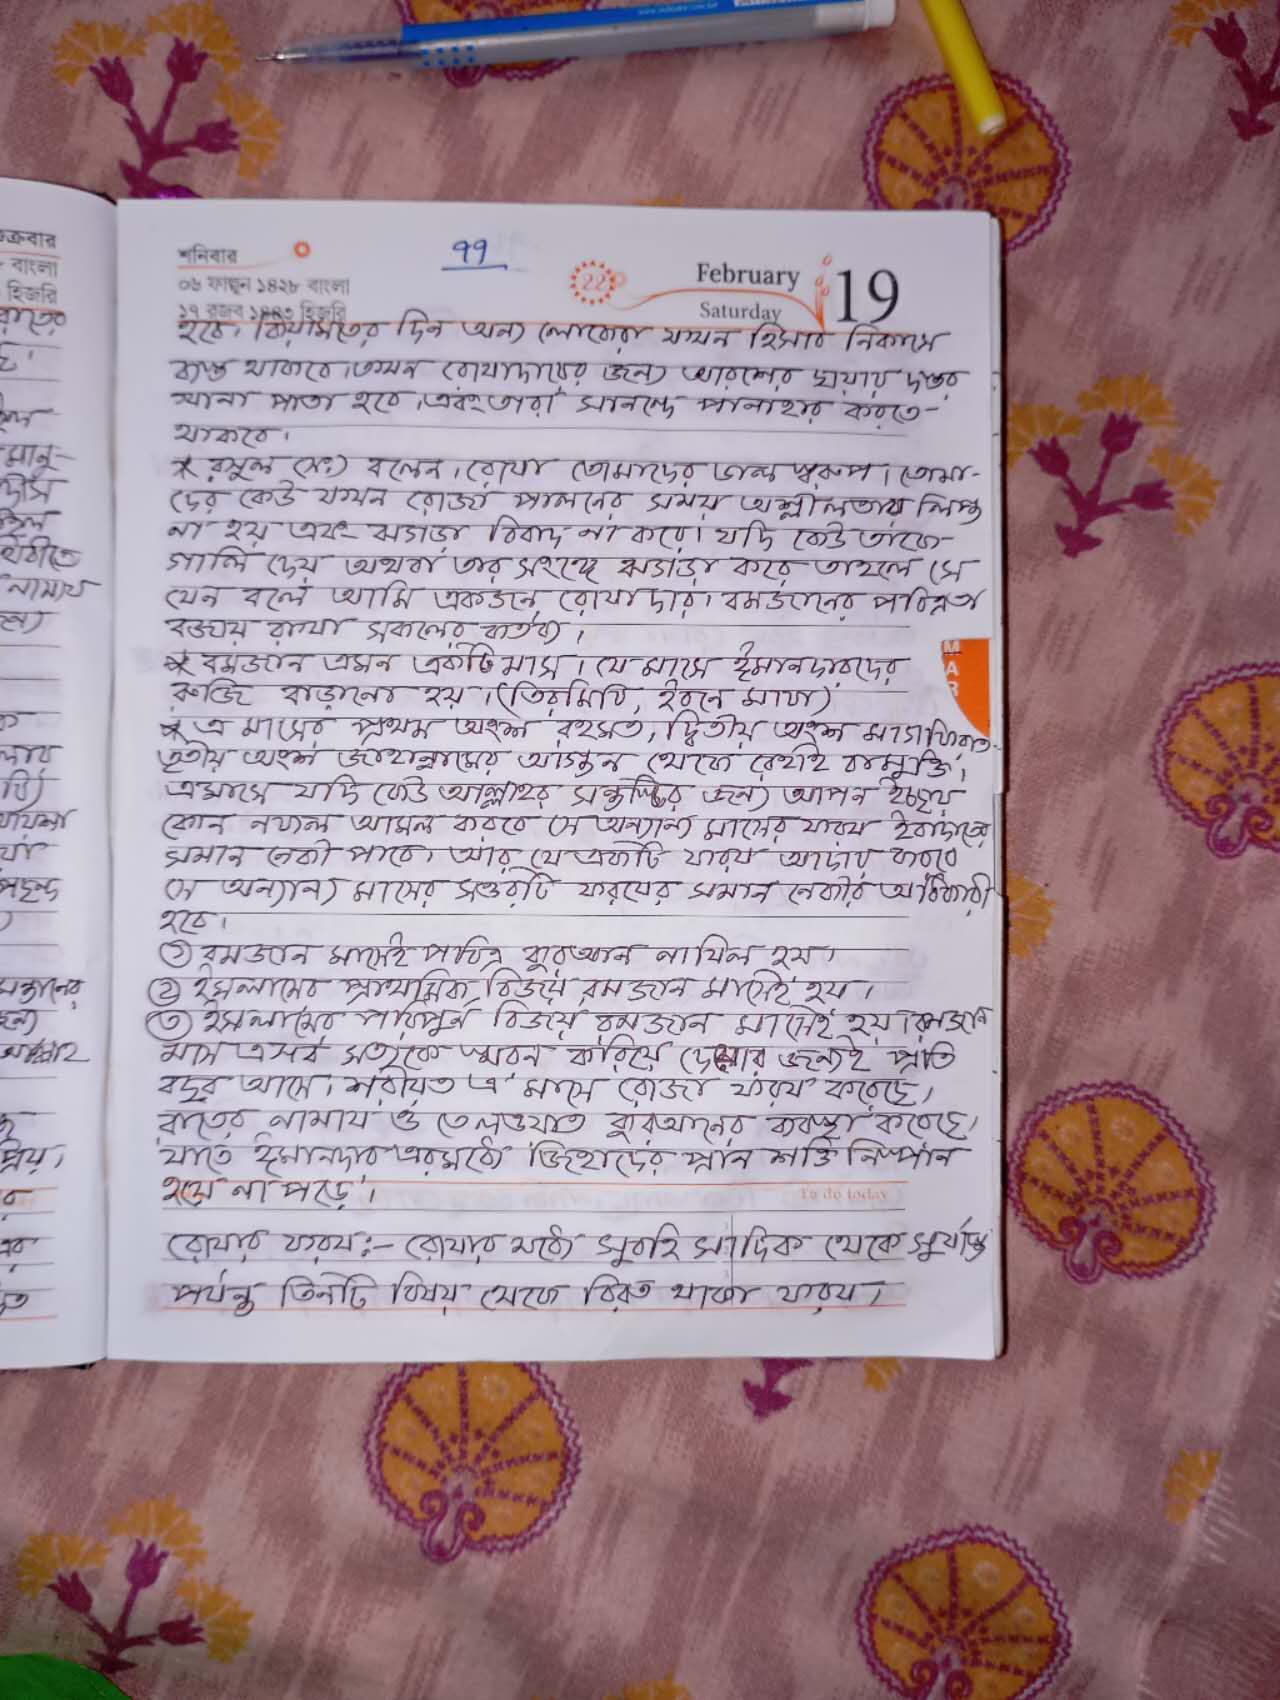 শনিবার
৭৭
০৬ ফাল্গুন ১৪২৮ বাংলা
১৭ রজব ১৪৪৩ হিজরি
22
February
Saturday
19
হবে। কিয়ামতের দিন অন্য লোকেরা যখন হিসাব নিকাশে
ব্যস্ত থাকবে। তখন রোযাদারের জন্য আরশের ছায়ায় দস্তর
খানা পাতা হবে। এবং তারা সানন্দে পানাহার করতে-
থাকবে।
* রসুল (সঃ) বলেন। রোযা তোমাদের ঢাল স্বরুপ। তোমা-
দের কেউ যখন রোজা পালনের সময় অশ্লীলতায় লিপ্ত
না হয় এবং ঝগড়া বিবাদ না করে। যদি কেউ তাকে-
গালি দেয় অথবা তার সংঙ্গে ঝগড়া করে তাহলে সে
যেন বলে আমি একজন রোযাদার। রমজানের পবিত্রতা
বজায় রাখা সকলের কর্তব্য।
* রমজান এমন একটি মাস। যে মাসে ঈমানদারদের
রুজি বাড়ানো হয়। (তিরমিযি, ইবনে মাযা)
* এ মাসের প্রথম অংশ রহমত, দ্বিতীয় অংশ মাগফিরাত
তৃতীয় অংশ জাহান্নামের আগুন থেকে রেহাই বা মুক্তি।
এমাসে যদি কেউ আল্লাহর সন্তুষ্টির জন্য আপন ইচ্ছায়
কোন নফল আমল করবে সে অন্যান্য মাসের ফরয ইবাদতের
সমান নেকী পাবে। আর যে একটি ফরয আদায় করবে
সে অন্যান্য মাসের সত্তরটি ফরযের সমান নেকীর অধিকারী
হবে।
① রমজান মাসেই পবিত্র কুরআন নাযিল হয়।
② ইসলামের প্রাথমিক বিজয় রমজান মাসেই হয়।
③ ইসলামের পরিপুর্ন বিজয় রমজান মাসেই হয়। রমজান
মাস এসব সত্যকে স্মরন করিয়ে দেয়ার জন্যই প্রতি
বছর আসে। শরীয়ত এ মাসে রোজা ফরয করেছে।
রাতের নামায ও তেলওয়াত কুরআনের ব্যবস্থা করেছে।
যাতে ঈমানদার এরমধ্যে জিহাদের প্রান শক্তি নিষ্প্রান
হয়ে না পড়ে।
To do today
রোযার ফরয:- রোযার মধ্যে সুবহি সাদিক থেকে সুর্যাস্ত
পর্যন্ত তিনটি বিষয় থেকে বিরত থাকা ফরয।
MAR